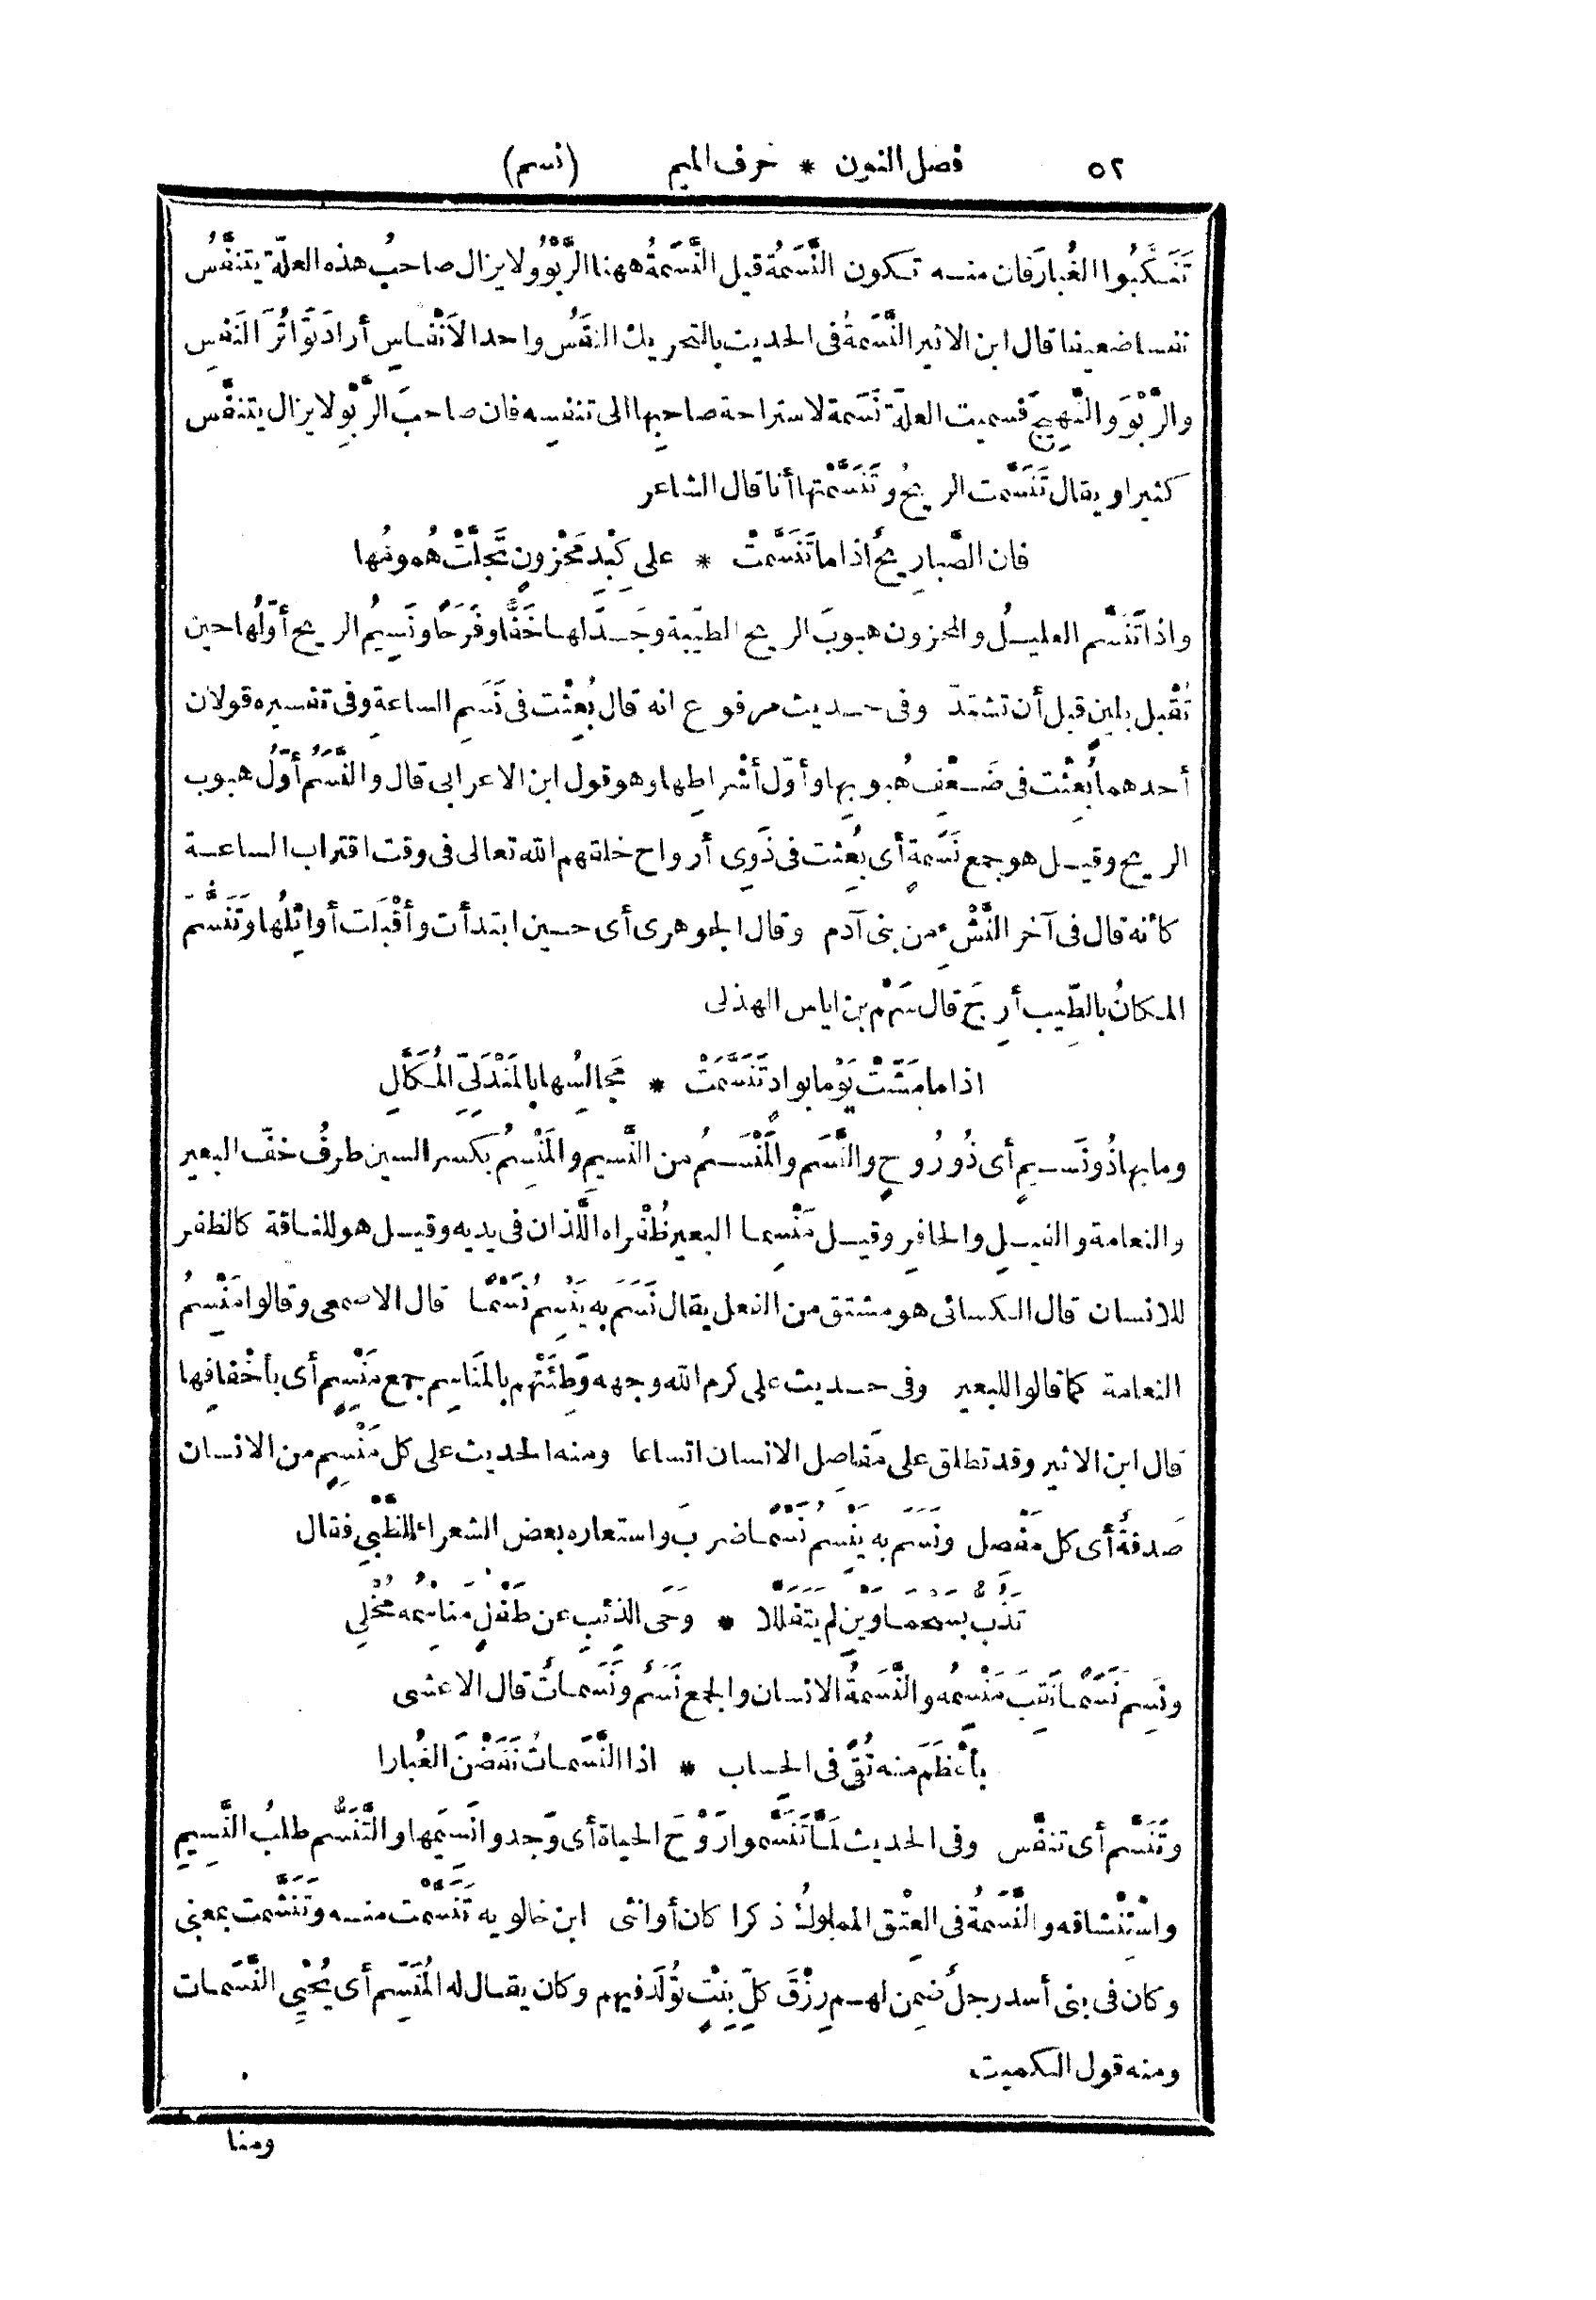 ٥٢ فصل النون * حرف الميم (نسم)
تَنَكَّبُوا الغُبارَ فان منه تكون النَّسَمةُ قيل النَّسَمةُ ههنا الرَّبْوُ ولا يزال صاحبُ هذه العلّة يتنفَّسُ
نفسا ضعيفا قال ابن الاثير النَّسَمةُ فى الحديث بالتحريك النفَسُ واحد الاَنْفاسِ أرادَ تَواتُرَ النَفسِ
والرَّبْوَ والنَّهِيجَ فسميت العلّة نَسَمة لاستراحة صاحبِها الى تنفسِه فان صاحبَ الرَّبْوِ لا يزال يتنفَّس
كثيرا ويقال تَنَسَّمت الريحُ وتَنَسَّمْتها أنا قال الشاعر
فان الصَّبا رِيحٌ اذا ما تَنَسَّمتْ * على كِبْدِ مَحْزونٍ تَجَلَّتْ هُمومُها
واذا تَنَسَّم العليلُ والمحزون هبوبَ الريح الطيّبة وجَدَ لها خَفًّا وفَرَحًا ونَسِيمُ الريح أوّلُها حين
تُقْبل بلينٍ قبل أن تشتدّ وفى حديث مرفوع انه قال بُعِثْت فى نَسَمِ الساعةِ وفى تفسيره قولان
أحدهما بُعِثْت فى ضَعْفِ هُبوبِها وأوّل أشْراطِها وهو قول ابن الاعرابى قال والنَّسَمُ أوّلُ هبوب
الريح وقيل هو جمع نَسَمةٍ أى بُعِثت فى ذَوِى أرواح خلقهم الله تعالى فى وقت اقتراب الساعة
كأنه قال فى آخر النَّشْءِ من بنى آدم وقال الجوهرى أى حين ابتدأت وأقْبَلت أوائِلُها وتَنَسَّمَ
المكانُ بالطِّيب أرِجَ قال سَهْم بن اياس الهذلى
اذا ما مَشَتْ يَوْما بوادٍ تَنَسَّمَتْ * مَجالِسُها بالمَنْدَلِىِّ المُكَلَّلِ
وما بها ذُو نَسِيمٍ أى ذُو رُوحٍ والنَّسَم والمَنْسَمُ من النَّسيمِ والمَنْسِمُ بكسر السين طرفُ خفّ البعير
والنعامة والفيلِ والحافرِ وقيل مَنْسِما البعير ظُفْراه اللَّذان فى يديه وقيل هو للناقة كالظفر
للانسان قال الكسائى هو مشتق من الفعل يقال نَسَمَ به يَنْسِمُ نَسْمًا قال الاصمعى وقالوا مَنْسِمُ
النعامة كما قالوا للبعير وفى حديث على كرم الله وجهه وَطِئَتْهم بالمَناسِم جمع مَنْسِمٍ أى بأخْفافِها
قال ابن الاثير وقد تطلق على مَفاصِل الانسان اتساعا ومنه الحديث على كل مَنْسِمٍ من الانسان
صَدقةٌ أى كل مَفْصِل ونَسَم به يَنْسِمُ نَسْمًا ضربَ واستعاره بعض الشعراء للظَّبْىِ فقال
تَذُبُّ بسَحْماوَيْنِ لم يَتَفَلَّلا * وَحَى الذِّئبِ عن طَفْلٍ مَناسِمُه مُخْلِى
ونَسِم نَسَمًا نَقِبَ مَنْسِمُه والنَّسَمةُ الانسان والجمع نَسَمٌ ونَسَماتٌ قال الاعشى
بأعْظَمَ منه تُقًى فى الحِساب * اذا النَّسَماتُ نَفَضْنَ الغُبارا
وتَنَسَّم أى تنفَّس وفى الحديث لمَّا تَنَسَّموا رَوْحَ الحياة أى وَجدوا نَسِيمَها والتَّنَسُّم طلبُ النَّسِيمِ
واسْتِنْشاقه والنَّسَمةُ فى العِتْق المملوكُ ذكرا كان أو انثى ابن خالويه تَنَسَّمْت منه وتَنَشَّمت بمعنى
وكان فى بنى أسد رجلٌ ضمِن لهم رِزْقَ كلِّ بِنْتٍ تُولَد فيهم وكان يقال له المُنَسِّم أى يُحْيِى النَّسَمات
ومنه قول الكميت
ومنا